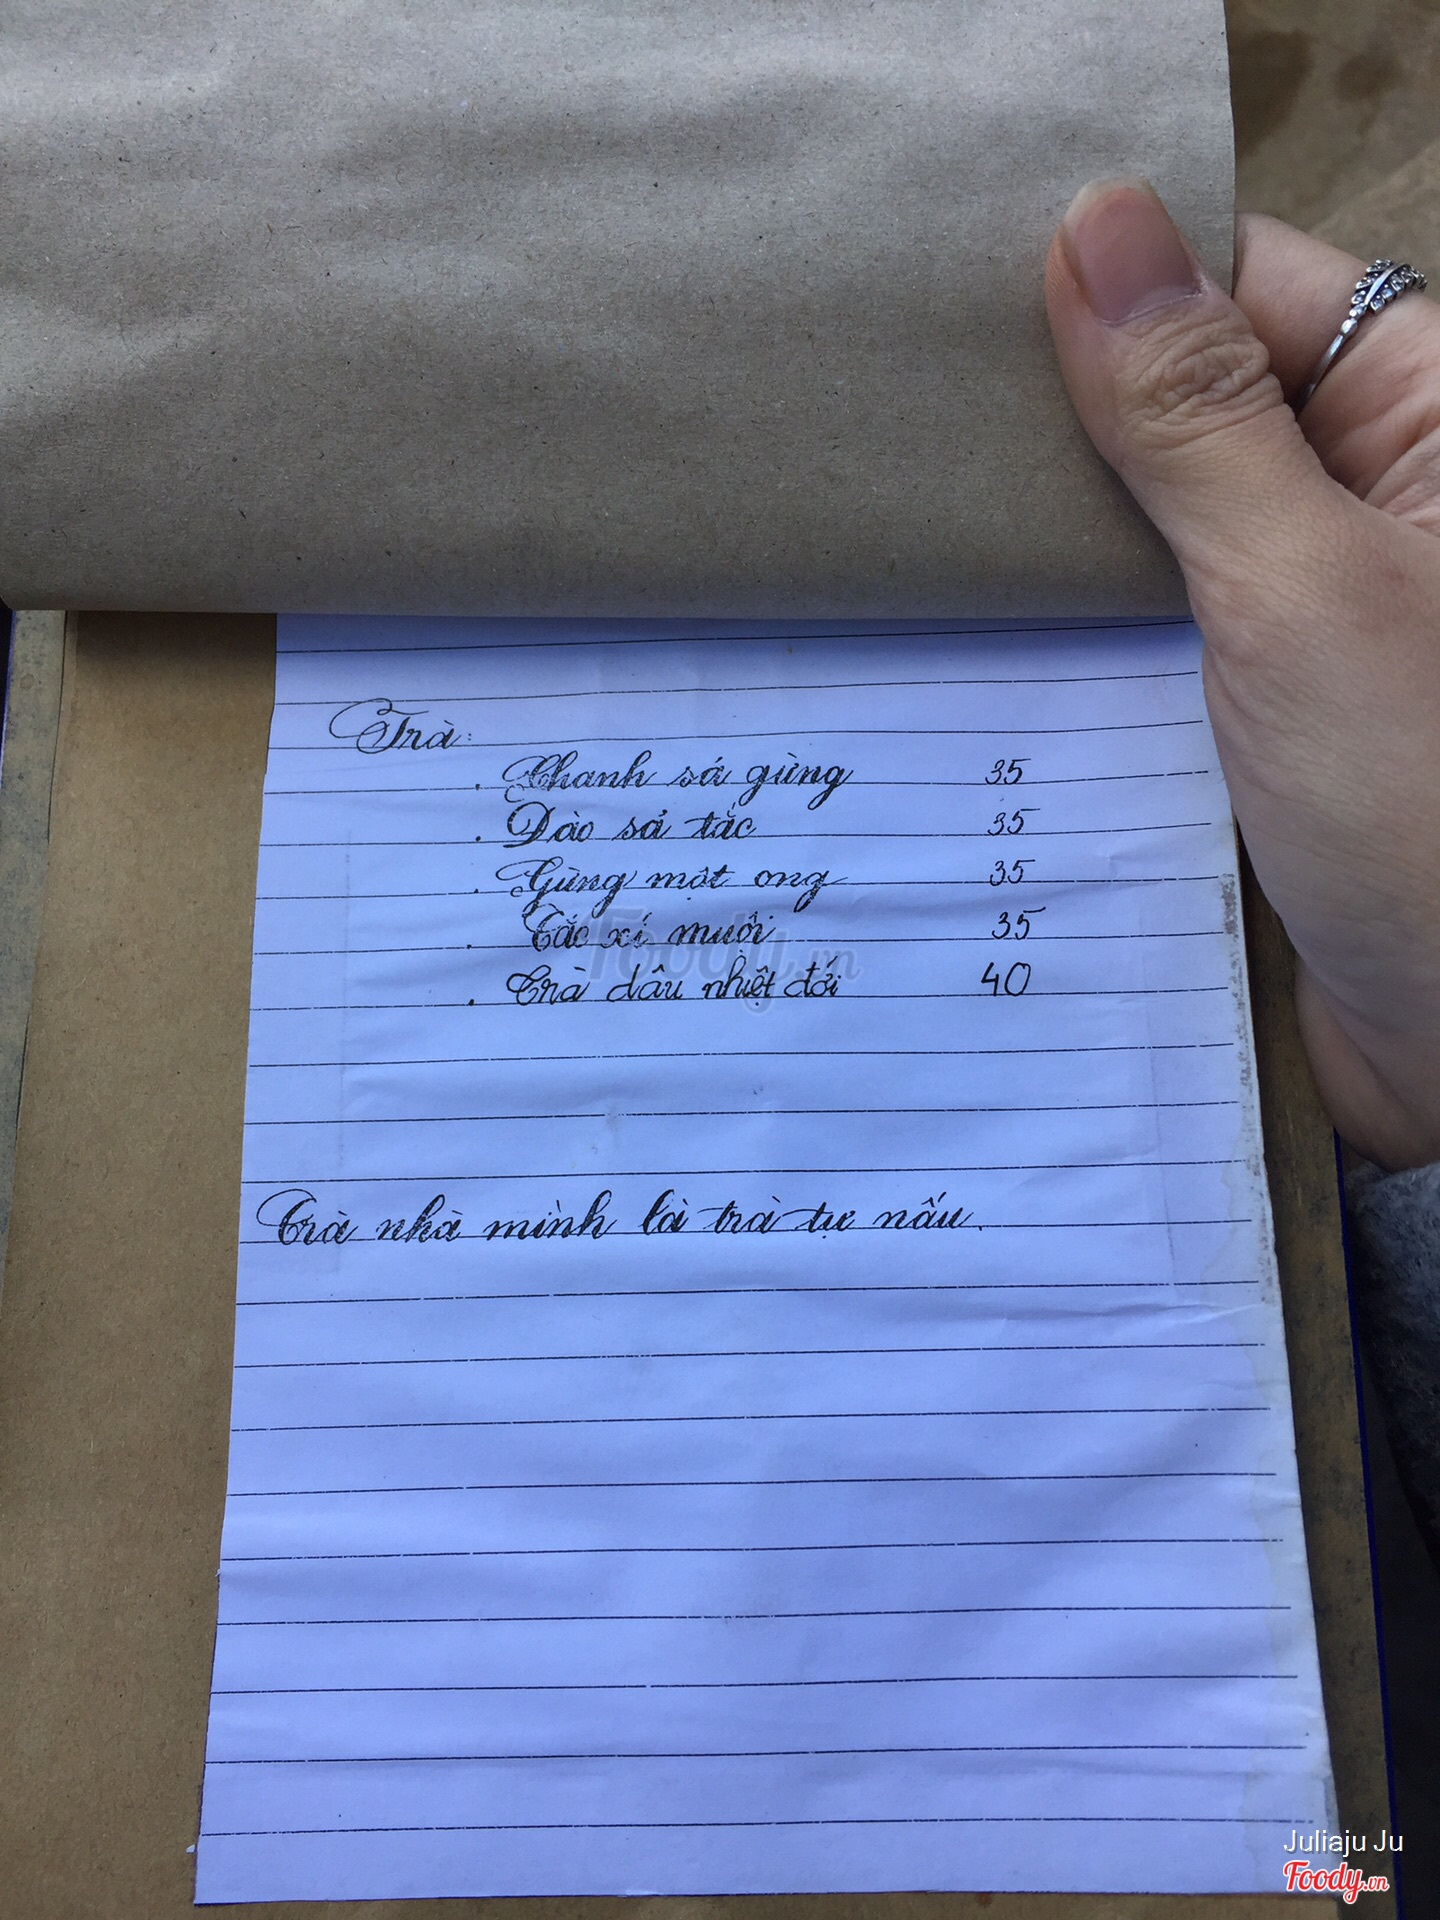 Trà:
. Chanh sả gừng 35
. Đào sả tắc 35
. Gừng mật ong 35
. Tắc xí muội 35
. Trà dâu nhiệt đới 40
Foody.vn
Trà nhà mình là trà tự nấu.
Juliaju Ju
Foody.vn